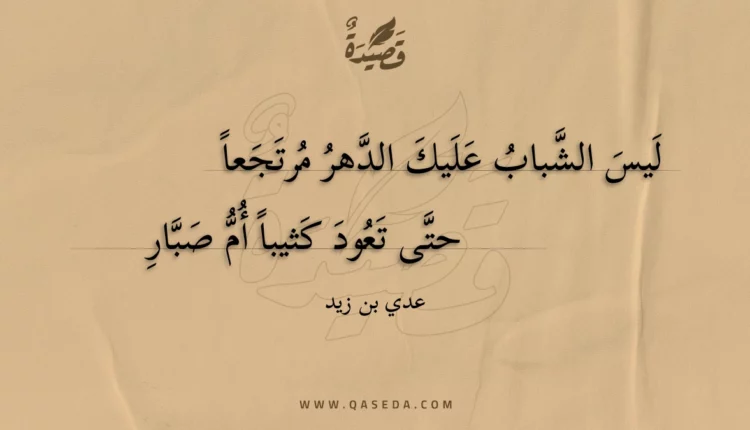 قَصِيْدَةٌ
لَيسَ الشَّبابُ عَلَيكَ الدَّهرُ مُرتَجَعاً
حتَّى تَعُودَ كَثيباً أُمُّ صَبَّارِ
عدي بن زيد
WWW.QASEDA.COM